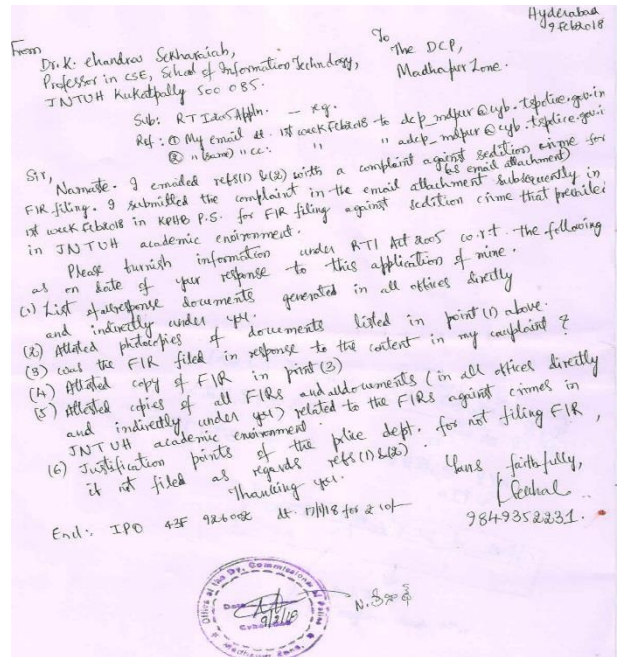 Hyderabad
9 Feb2018
From
Dr. K. Chandra Sekharaiah,
Professor in CSE, School of Information Technology,
JNTUH Kukatpally 500 085.
To
The DCP,
Madhapur Zone.
Sub: RTI2005 Appln. — reg.
Ref: ① My email dt. 1st week Feb2018 to dcp_mdpur@cyb.tspolice.gov.in
② " (same) " cc: " " adcp_mdpur@cyb.tspolice.gov.i
Sir,
Namaste. I emailed refs(1) &(2) with a complaint against sedition crime for
(as email attachment)
FIR filing. I submitted the complaint in the email attachment subsequently in
1st week Feb2018 in KPHB P.S. for FIR filing against sedition crime that prevailed
in JNTUH academic environment.
Please furnish information under RTI Act 2005 w.r.t. the following
as on date of your response to this application of mine.
(1) List of all response documents generated in all offices directly
and indirectly under you.
(2) Attested photocopies of documents listed in point (1) above.
(3) Was the FIR filed in response to the content in my complaint?
(4) Attested copy of FIR in point (3)
(5) Attested copies of all FIRs and all documents (in all offices directly
and indirectly under you) related to the FIRs against crimes in
JNTUH academic environment.
(6) Justification points of the police dept. for not filing FIR,
if not filed as regards refs(1)&(2).
Thanking you.
Yours faithfully,
9849352231.
Encl: IPO 43F 926002 dt. 17/1/18 for ₹ 10/-
Office of the Dy. Commissioner of Police
Date
9/2/18
Cyberabad
Madhapur Zone.